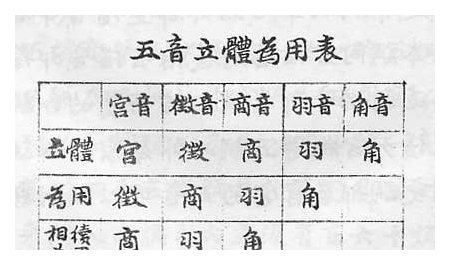 五音立體為用表
宮音 徵音 商音 羽音 角音
立體 宮 徵 商 羽 角
為用 徵 商 羽 角
相續 商 羽 角